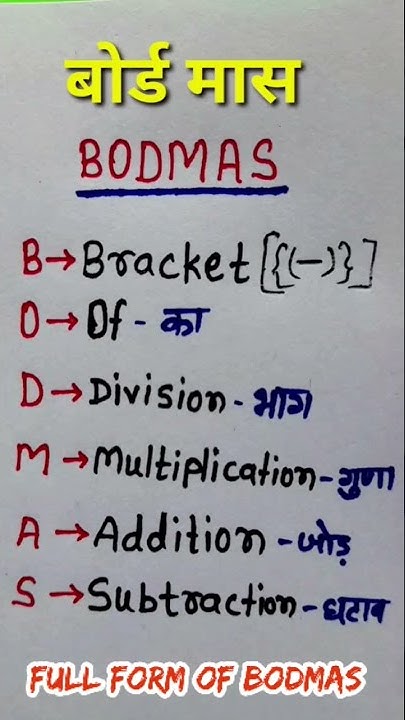 बोर्ड मास
BODMAS
B→Bracket [{(—)}]
O→Of - का
D→Division - भाग
M→Multiplication - गुणा
A→Addition - जोड़
S→Subtraction - घटाव
FULL FORM OF BODMAS